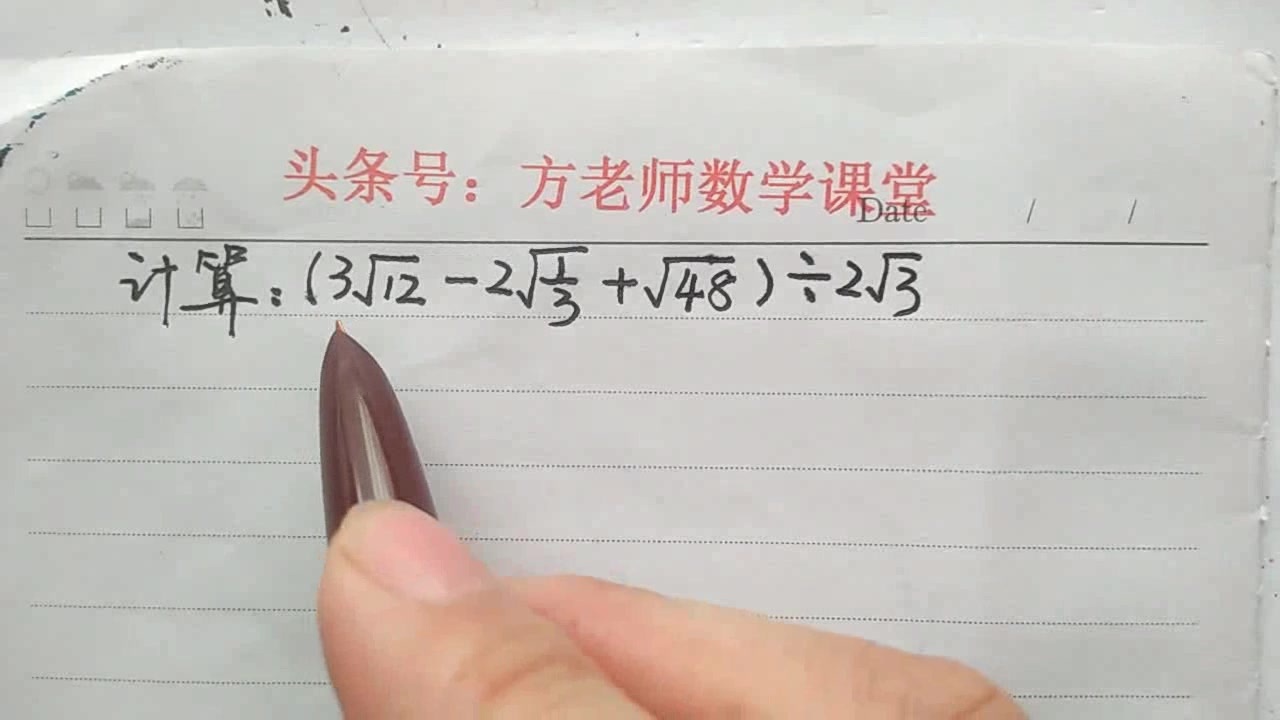 头条号：方老师数学课堂
Date / /
计算：(3√12 - 2√(1/3) + √48) ÷ 2√3